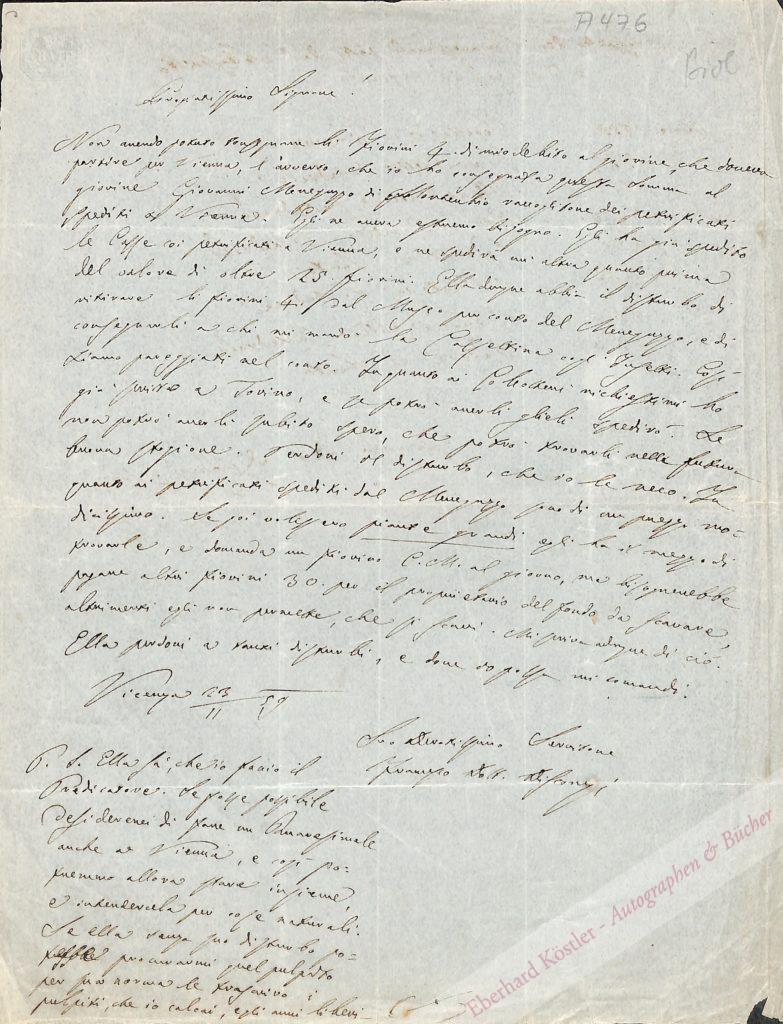 A 476
Biol
Pregiatissimo Signore!
Non avendo potuto consegnare li Fiorini 4 di mio debito al giovine, che doveva
partire per Vienna, l'avverto, che io ho consegnata questa somma al
giovine Giovanni Meneguzzo di Montecchio raccoglitore dei petrificati
spediti a Vienna. Egli ne aveva estremo bisogno. Egli ha già spedito
le Casse coi petrificati a Vienna, e ne spedirà un altra quanto prima
del valore di oltre 25 fiorini. Ella dunque abbia il disturbo di
ritirare li fiorini 4 dal Museo per conto del Meneguzzo, e di
consegnarli a chi mi mandò la Cassettina cogli Insetti. Così
siamo pareggiati nel conto. In quanto ai richiestimi ho
già scritto a Torino, e se potrò averli glieli spedirò. Se
non potrò averli subito spero, che potrò trovarli nella futura
buona stagione. Perdoni il disturbo, che io le reco. In
quanto ai petrificati spediti dal Meneguzzo sono di un prezzo mo-
dicissimo. Se poi volessero piante grandi egli ha il mezzo di
trovarle, e domanda un fiorino C.M. al giorno, ma bisognerebbe
pagare altri fiorini 30 per il proprietario del fondo da scavare,
altrimenti egli non permette, che si scavi. Mi scriva adunque di ciò.
Ella perdoni a tanti disturbi, e dove io possa mi comandi.
Vicenza 23/11 59
Suo Devotissimo Servitore
Francesco Dott.
P. S. Ella sà, che io faccio il
Predicatore. Se fosse possibile
desidererei di fare un Quaresimale
anche a Vienna, e così po-
tremmo allora stare insieme,
e intendercela per cose naturali.
Se ella senza suo disturbo po-
procurarmi quel pulpito
per sua norma le trascrivo i
pulpiti, che io calcai, e gli anni liberi
Eberhard Köstler - Autographen & Bücher